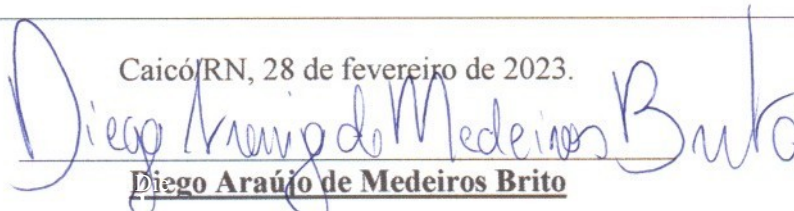 Caicó/RN, 28 de fevereiro de 2023.
Diego Araújo de Medeiros Brito
Diego Araújo de Medeiros Brito